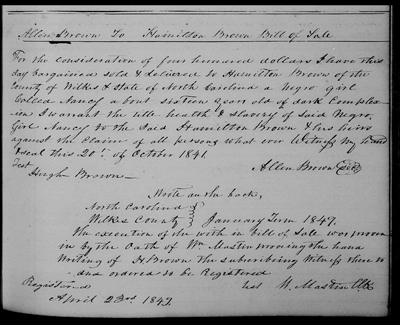 Allen Brown To Hamilton Brown Bill of Sale
For the consideration of four hundred dollars I have this
day bargained sold & delivered to Hamilton Brown of the
County of Wilkes & State of North Carolina a Negro girl
Called Nancy about sixteen years old of dark Complex-
ion I warrant the title health & slavery of said Negro
Girl Nancy to the said Hamilton Brown & his heirs
against the Claim of all persons what ever Witness my hand
& seal this 20th of October 1841.
Test Allen Brown
Hugh Brown
Note on the back,
North Carolina
Wilkes County January Term 1847.
The execution of the with in bill of Sale was proven
in by the Oath of Wm Mastin proving the hand
writing of H Brown the subscribing Witness there to
and ordered to be Registered
Registered Test W. Mastin Clk
April 23rd 1847.